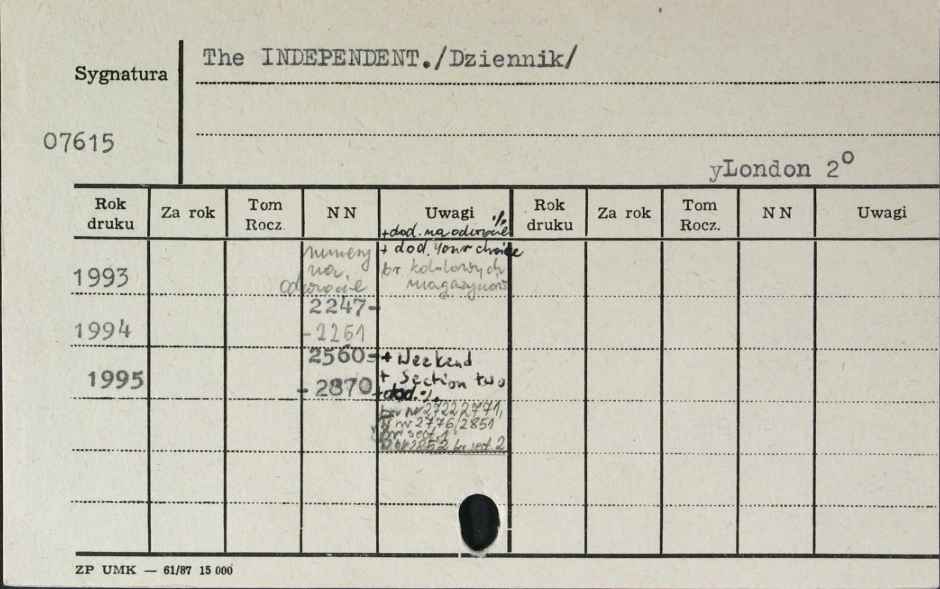 The INDEPENDENT./Dziennik/
Sygnatura
07615
yLondon 2°
Rok druku Za rok Tom Rocz. N N Uwagi Rok druku Za rok Tom Rocz. N N Uwagi
·/.
+dod. na odwrocie
numery + dod. Your choice
1993 na br. kolorowych
odwrocie magazynów
2247-
1994 -2261
2560- + Weekend
1995 + Section two
- 2870 +dod. ·/.
nr 2722, 2771,
nr 2776, 2851
sect. 1
2852 br sect. 2
ZP UMK — 61/87 15 000